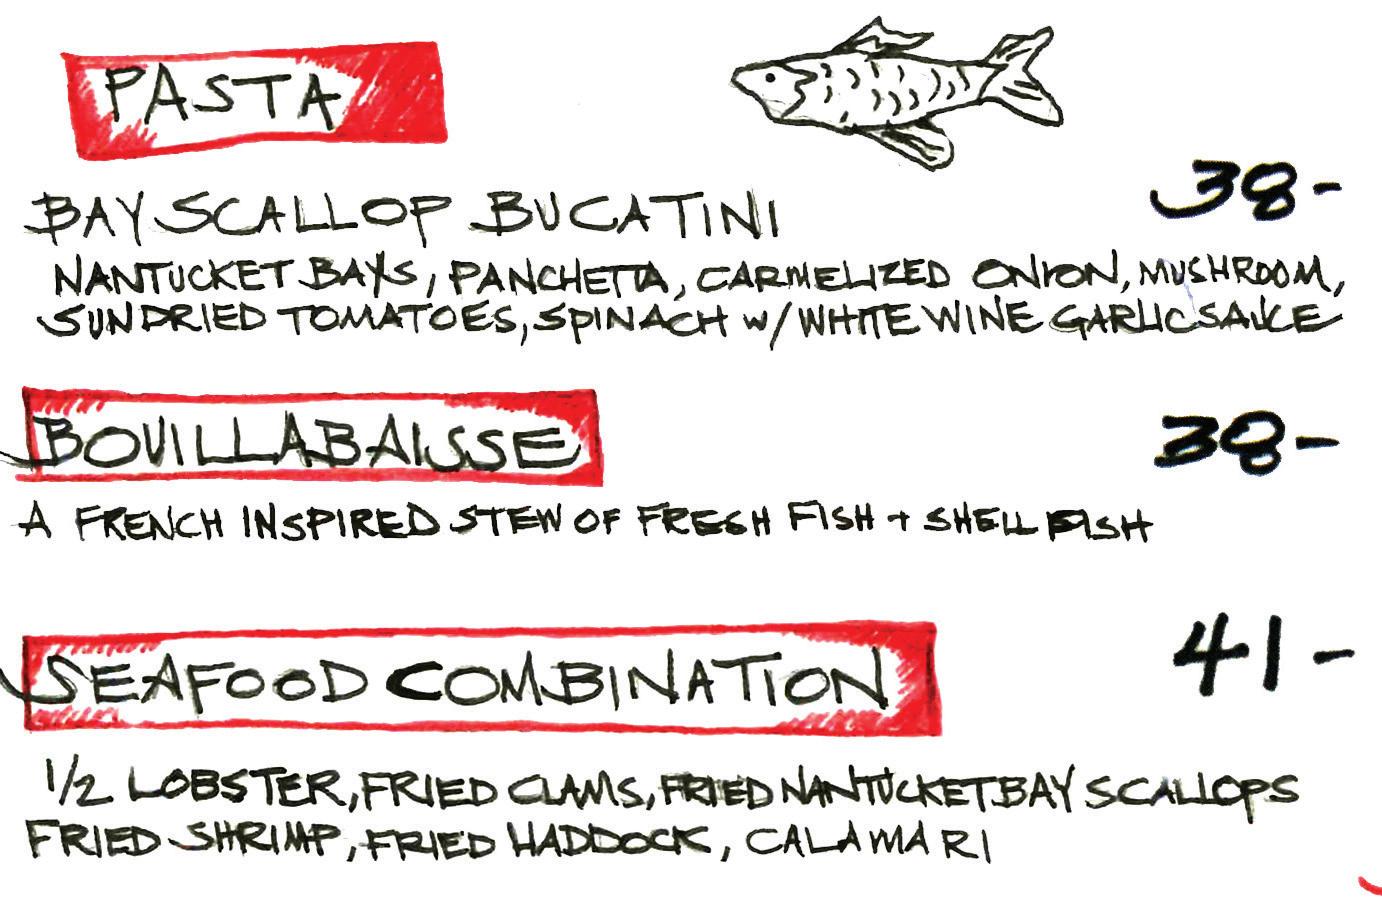 PASTA
BAY SCALLOP BUCATINI 38-
NANTUCKET BAYS, PANCHETTA, CARMELIZED ONION, MUSHROOM,
SUNDRIED TOMATOES, SPINACH w/ WHITE WINE GARLIC SAUCE
BOUILLABAISSE 38-
A FRENCH INSPIRED STEW OF FRESH FISH + SHELL FISH
SEAFOOD COMBINATION 41-
1/2 LOBSTER, FRIED CLAMS, FRIED NANTUCKET BAY SCALLOPS
FRIED SHRIMP, FRIED HADDOCK, CALAMARI